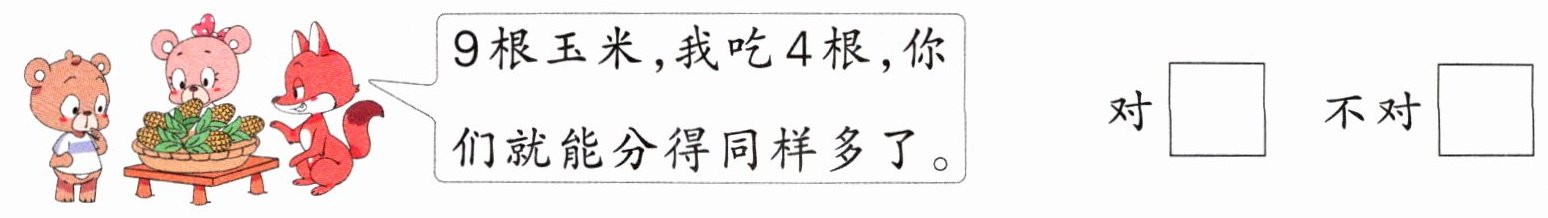 9根玉米,我吃4根,你
们就能分得同样多了。
对 不对